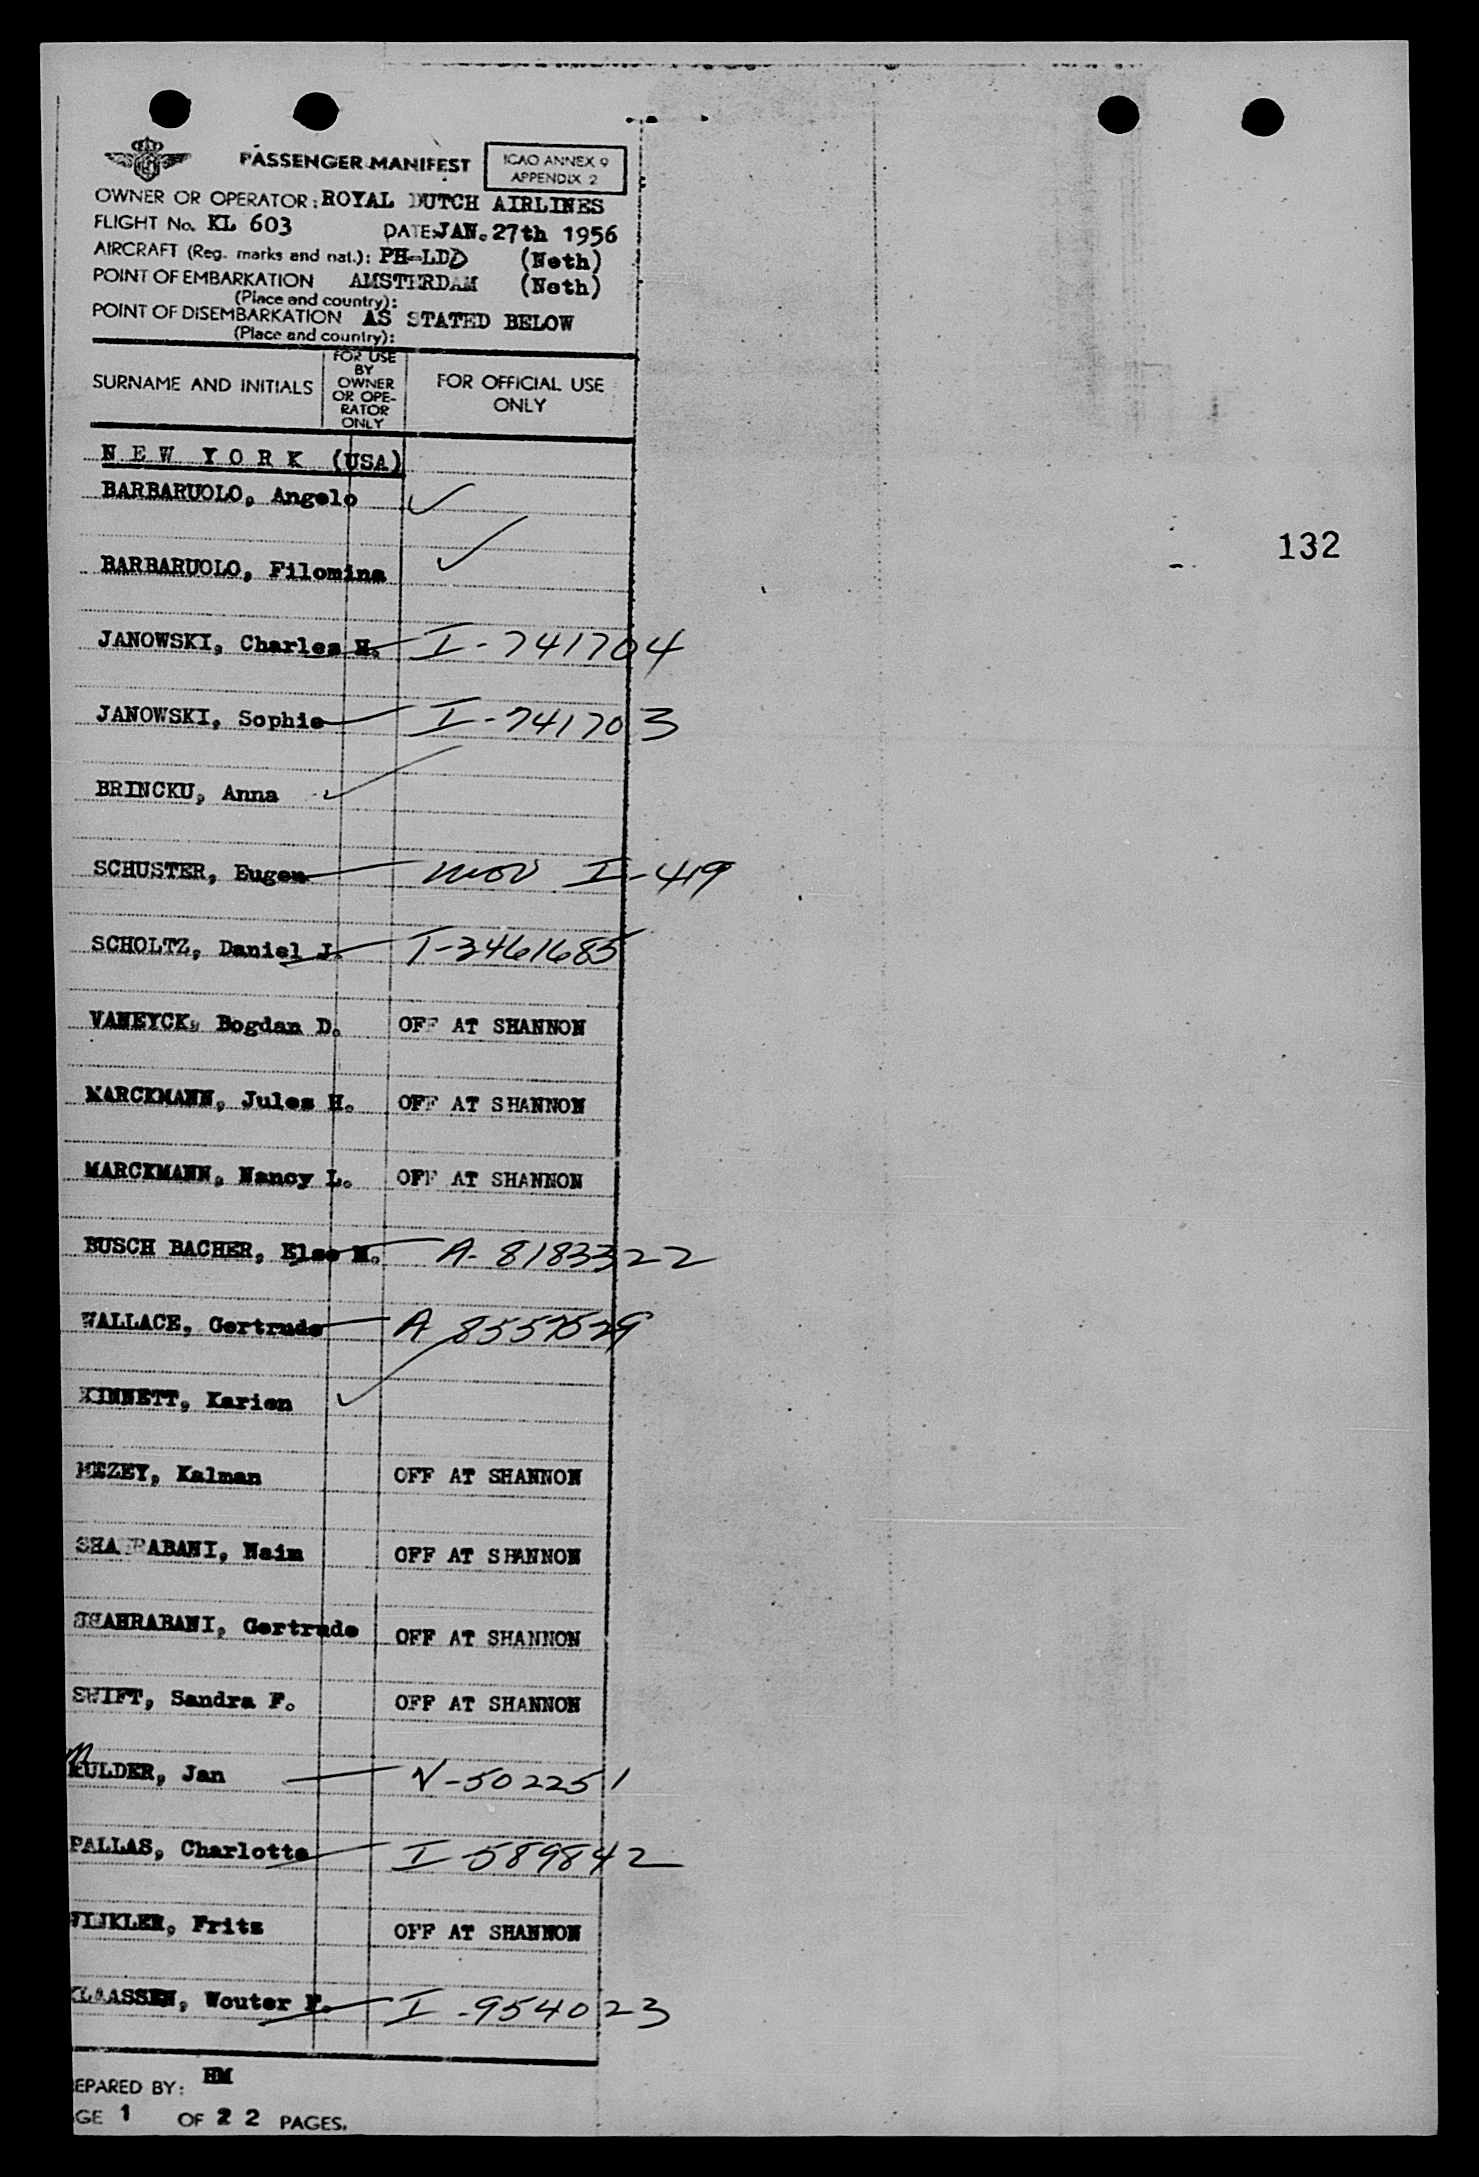 PASSENGER MANIFEST
ICAO ANNEX 9
APPENDIX 2
OWNER OR OPERATOR: ROYAL DUTCH AIRLINES
FLIGHT No. KL 603 DATE: JAN. 27th 1956
AIRCRAFT (Reg. marks and nat.): PH-LDD (Neth)
POINT OF EMBARKATION AMSTERDAM (Neth)
(Place and country):
POINT OF DISEMBARKATION AS STATED BELOW
(Place and country):
SURNAME AND INITIALS
FOR USE
BY
OWNER
OR OPE-
RATOR
ONLY
FOR OFFICIAL USE
ONLY
NEW YORK (USA)
BARBARUOLO, Angelo ✓
BARBARUOLO, Filomina ✓
JANOWSKI, Charles H. I-741704
JANOWSKI, Sophie I-741703
BRINCKU, Anna ✓
SCHUSTER, Eugen mov I-419
SCHOLTZ, Daniel J. I-3461685
VANEYCK, Bogdan D. OFF AT SHANNON
MARCKMANN, Jules H. OFF AT SHANNON
MARCKMANN, Nancy L. OFF AT SHANNON
BUSCH BACHER, Else M. A-8183322
WALLACE, Gertrude A 8557529
KINNETT, Karien ✓
MEZEY, Kalman OFF AT SHANNON
SHAHRABANI, Naim OFF AT SHANNON
SHAHRABANI, Gertrude OFF AT SHANNON
SWIFT, Sandra F. OFF AT SHANNON
MULDER, Jan V-502251
PALLAS, Charlotte I-589842
WINKLER, Fritz OFF AT SHANNON
KLAASSEN, Wouter F. I-954023
EPARED BY: HM
GE 1 OF 2 2 PAGES.
132